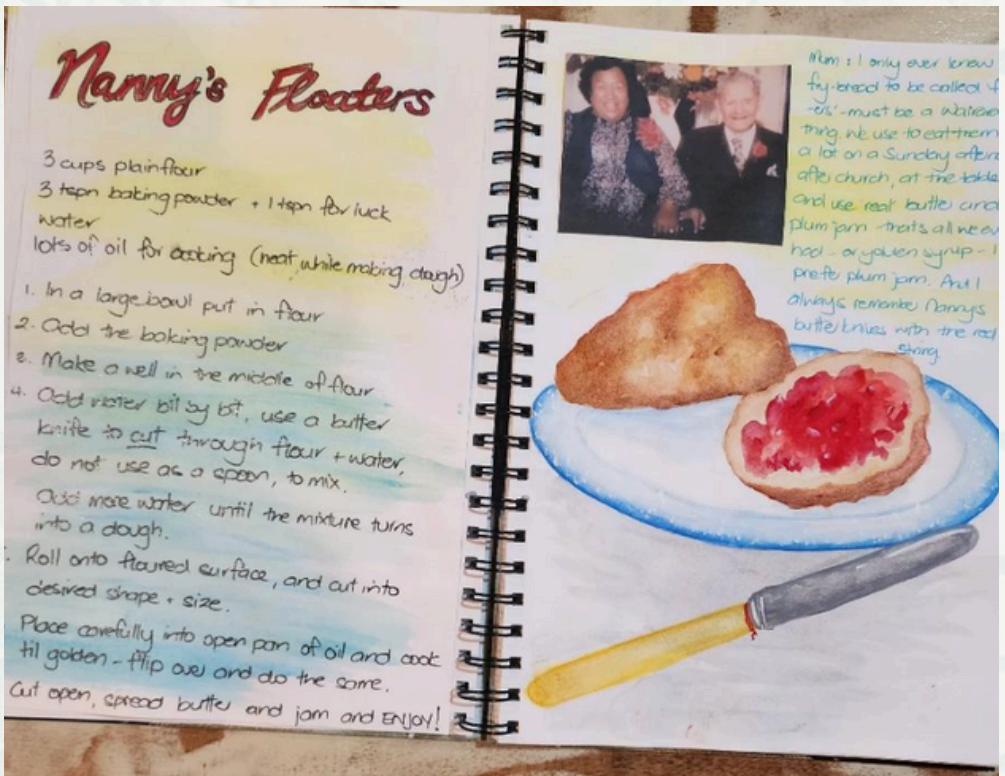 Nanny's Floaters
3 cups plain flour
3 tspn baking powder + 1 tspn for luck
water
lots of oil for cooking (heat while making dough)
1. In a large bowl put in flour
2. Add the baking powder
3. Make a well in the middle of flour
4. Add water bit by bit, use a butter
knife to cut through flour + water,
do not use as a spoon, to mix.
Add more water until the mixture turns
into a dough.
Roll onto floured surface, and cut into
desired shape + size.
Place carefully into open pan of oil and cook
til golden - flip over and do the same.
Cut open, spread butter and jam and ENJOY!
Mum: I only ever knew
fry-bread to be called
-ers' - must be a
thing. We use to eat them
a lot on a Sunday
after church, at the table
and use real butter and
plum jam - thats all we
had - or golden syrup - I
prefer plum jam. And I
always remember Nannys
butter knives with the red
string